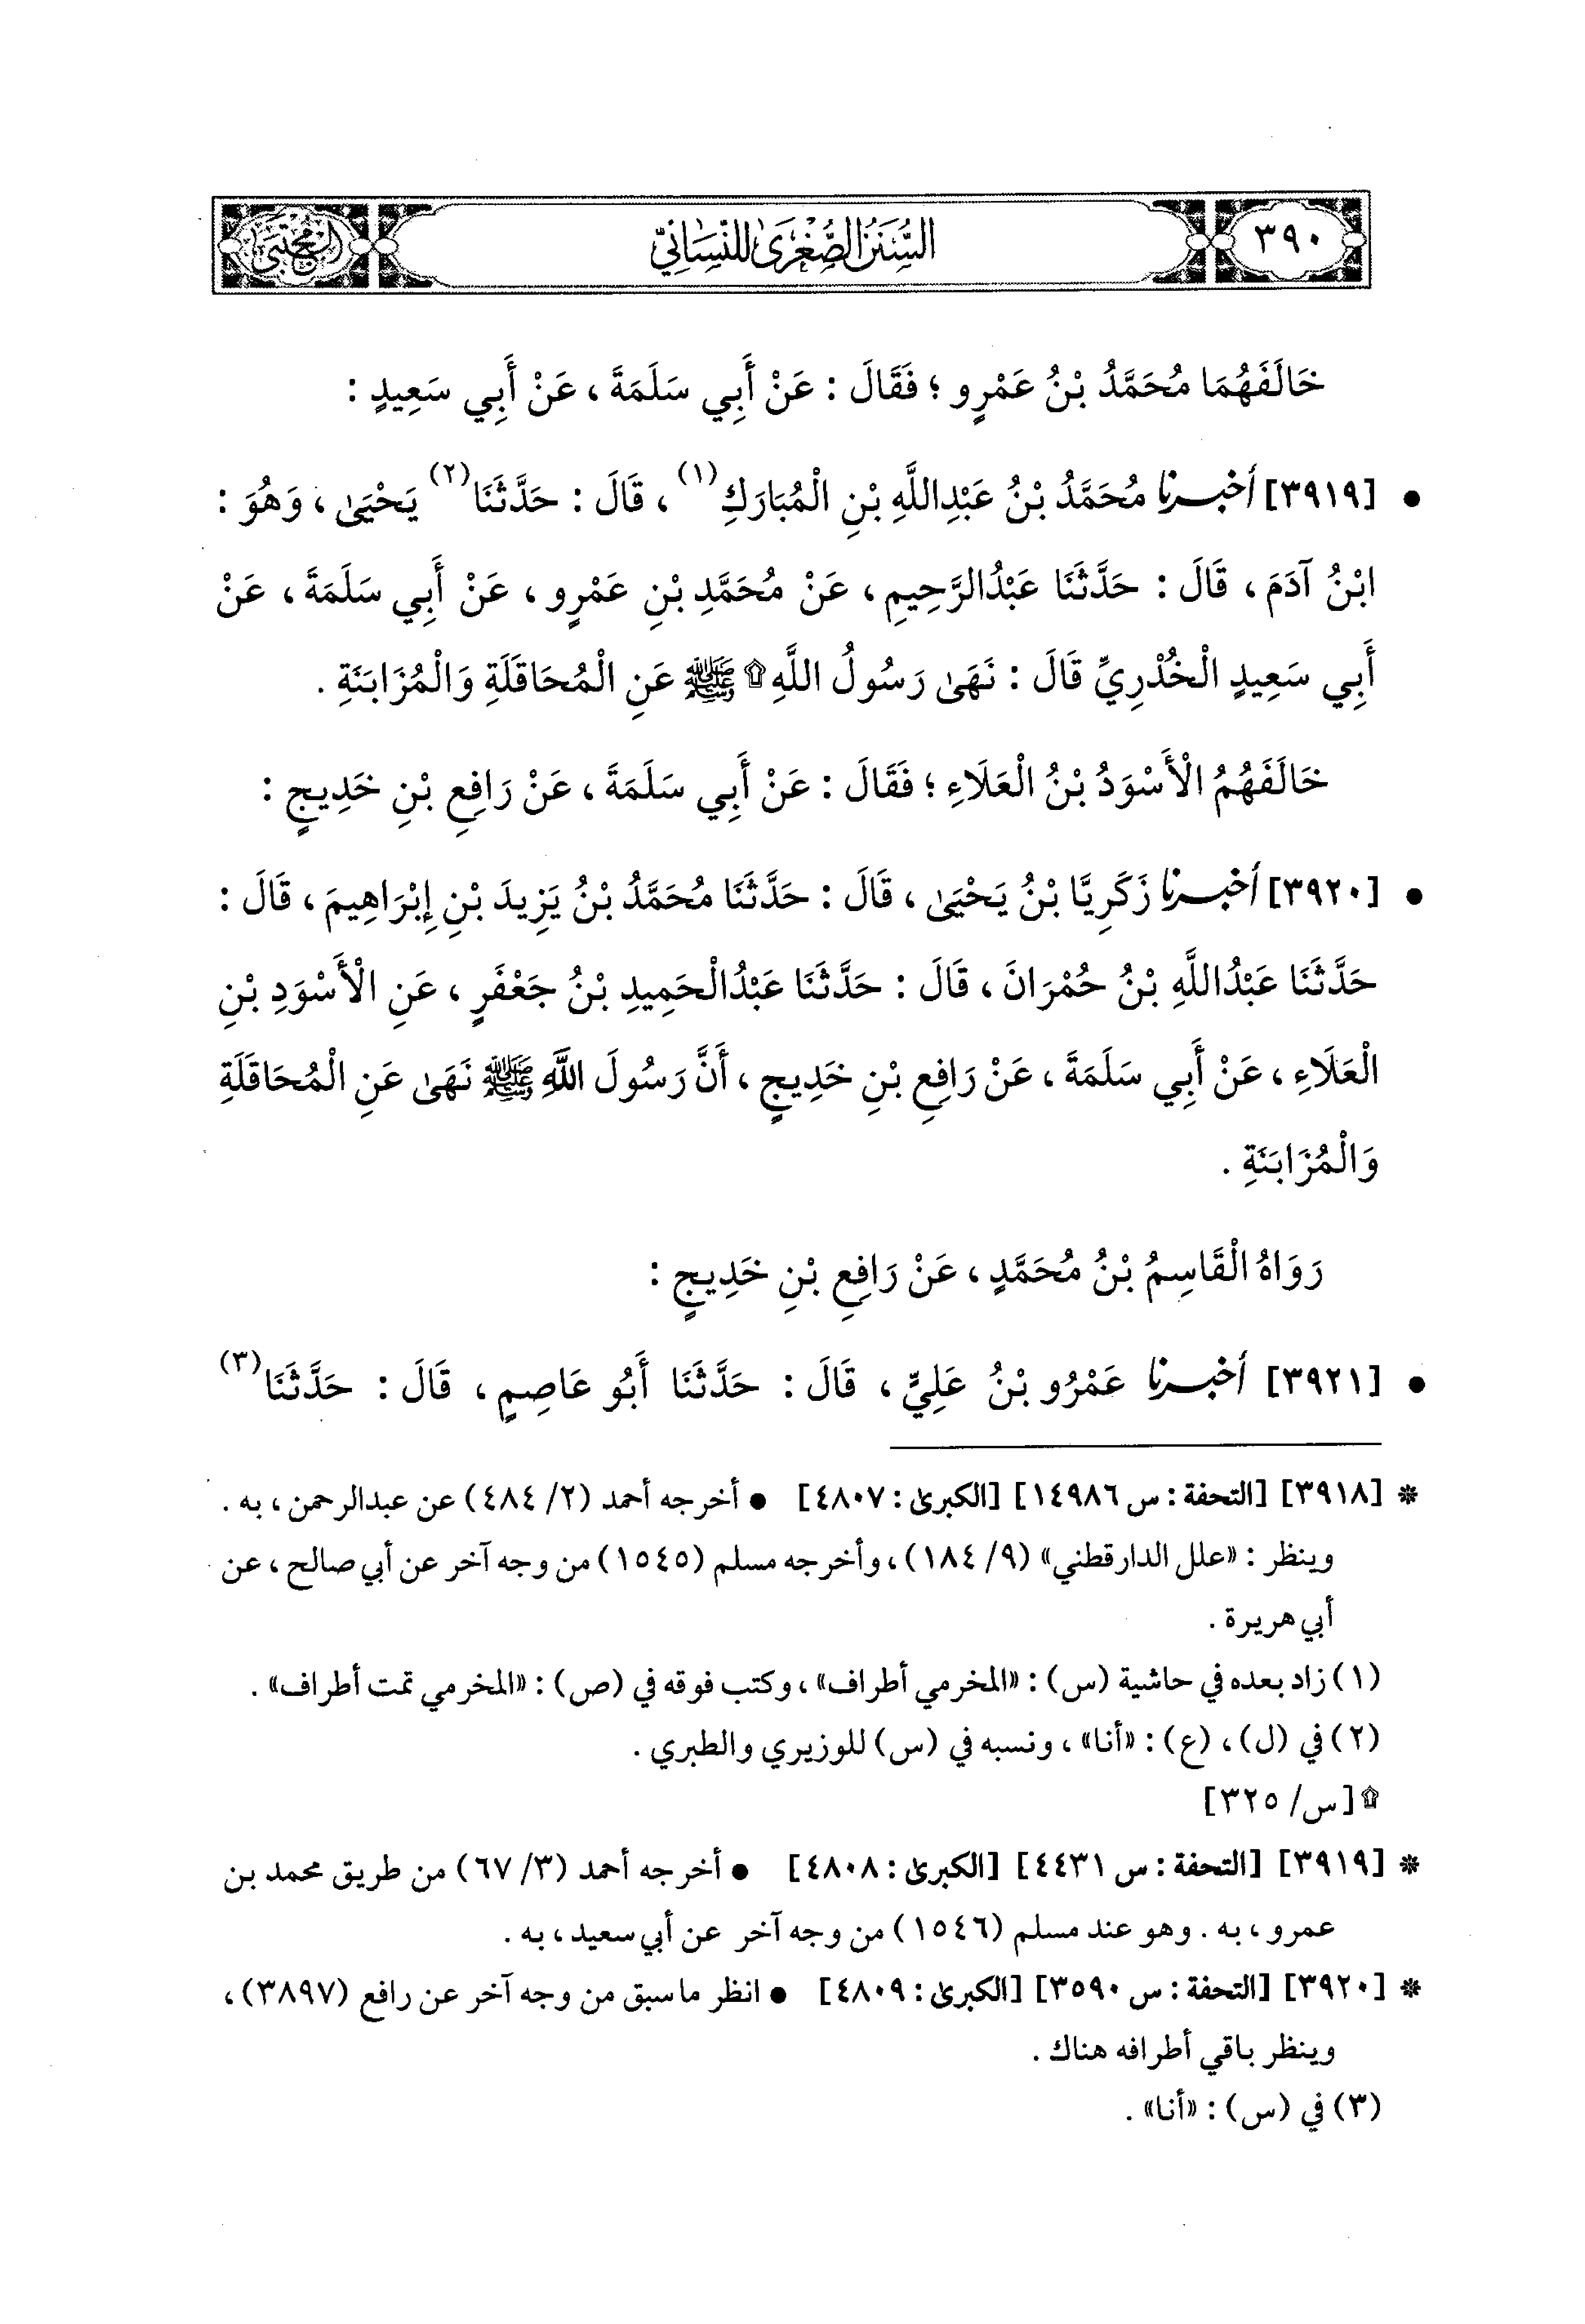 ٣٩٠
السُّنَنُ الصُّغْرَىٰ لِلنَّسَائِيِّ
المجتبى
خَالَفَهُمَا مُحَمَّدُ بْنُ عَمْرٍو ؛ فَقَالَ : عَنْ أَبِي سَلَمَةَ ، عَنْ أَبِي سَعِيدٍ :
• [٣٩١٩] أخبرنا مُحَمَّدُ بْنُ عَبْدِاللَّهِ بْنِ الْمُبَارَكِ(١) ، قَالَ : حَدَّثَنَا(٢) يَحْيَىٰ ، وَهُوَ :
ابْنُ آدَمَ ، قَالَ : حَدَّثَنَا عَبْدُالرَّحِيمِ ، عَنْ مُحَمَّدِ بْنِ عَمْرٍو ، عَنْ أَبِي سَلَمَةَ ، عَنْ
أَبِي سَعِيدٍ الْخُدْرِيِّ قَالَ : نَهَىٰ رَسُولُ اللَّهِ۩ ﷺ عَنِ الْمُحَاقَلَةِ وَالْمُزَابَنَةِ .
خَالَفَهُمُ الْأَسْوَدُ بْنُ الْعَلَاءِ ؛ فَقَالَ : عَنْ أَبِي سَلَمَةَ ، عَنْ رَافِعِ بْنِ خَدِيجٍ :
• [٣٩٢٠] أخبرنا زَكَرِيَّا بْنُ يَحْيَىٰ ، قَالَ : حَدَّثَنَا مُحَمَّدُ بْنُ يَزِيدَ بْنِ إِبْرَاهِيمَ ، قَالَ :
حَدَّثَنَا عَبْدُاللَّهِ بْنُ حُمْرَانَ ، قَالَ : حَدَّثَنَا عَبْدُالْحَمِيدِ بْنُ جَعْفَرٍ ، عَنِ الْأَسْوَدِ بْنِ
الْعَلَاءِ ، عَنْ أَبِي سَلَمَةَ ، عَنْ رَافِعِ بْنِ خَدِيجٍ ، أَنَّ رَسُولَ اللَّهِ ﷺ نَهَىٰ عَنِ الْمُحَاقَلَةِ
وَالْمُزَابَنَةِ .
رَوَاهُ الْقَاسِمُ بْنُ مُحَمَّدٍ ، عَنْ رَافِعِ بْنِ خَدِيجٍ :
• [٣٩٢١] أخبرنا عَمْرُو بْنُ عَلِيٍّ ، قَالَ : حَدَّثَنَا أَبُو عَاصِمٍ ، قَالَ : حَدَّثَنَا(٣)
* [٣٩١٨] [التحفة : س ١٤٩٨٦] [الكبرىٰ : ٤٨٠٧] • أخرجه أحمد (٢/ ٤٨٤) عن عبدالرحمن ، به .
وينظر : «علل الدارقطني» (٩/ ١٨٤) ، وأخرجه مسلم (١٥٤٥) من وجه آخر عن أبي صالح ، عن
أبي هريرة .
(١) زاد بعده في حاشية (س) : «المخرمي أطراف» ، وكتب فوقه في (ص) : «المخرمي تمت أطراف» .
(٢) في (ل) ، (ع) : «أنا» ، ونسبه في (س) للوزيري والطبري .
۩ [س/ ٣٢٥]
* [٣٩١٩] [التحفة : س ٤٤٣١] [الكبرىٰ : ٤٨٠٨] • أخرجه أحمد (٣/ ٦٧) من طريق محمد بن
عمرو ، به . وهو عند مسلم (١٥٤٦) من وجه آخر عن أبي سعيد ، به .
* [٣٩٢٠] [التحفة : س ٣٥٩٠] [الكبرىٰ : ٤٨٠٩] • انظر ما سبق من وجه آخر عن رافع (٣٨٩٧) ،
وينظر باقي أطرافه هناك .
(٣) في (س) : «أنا» .